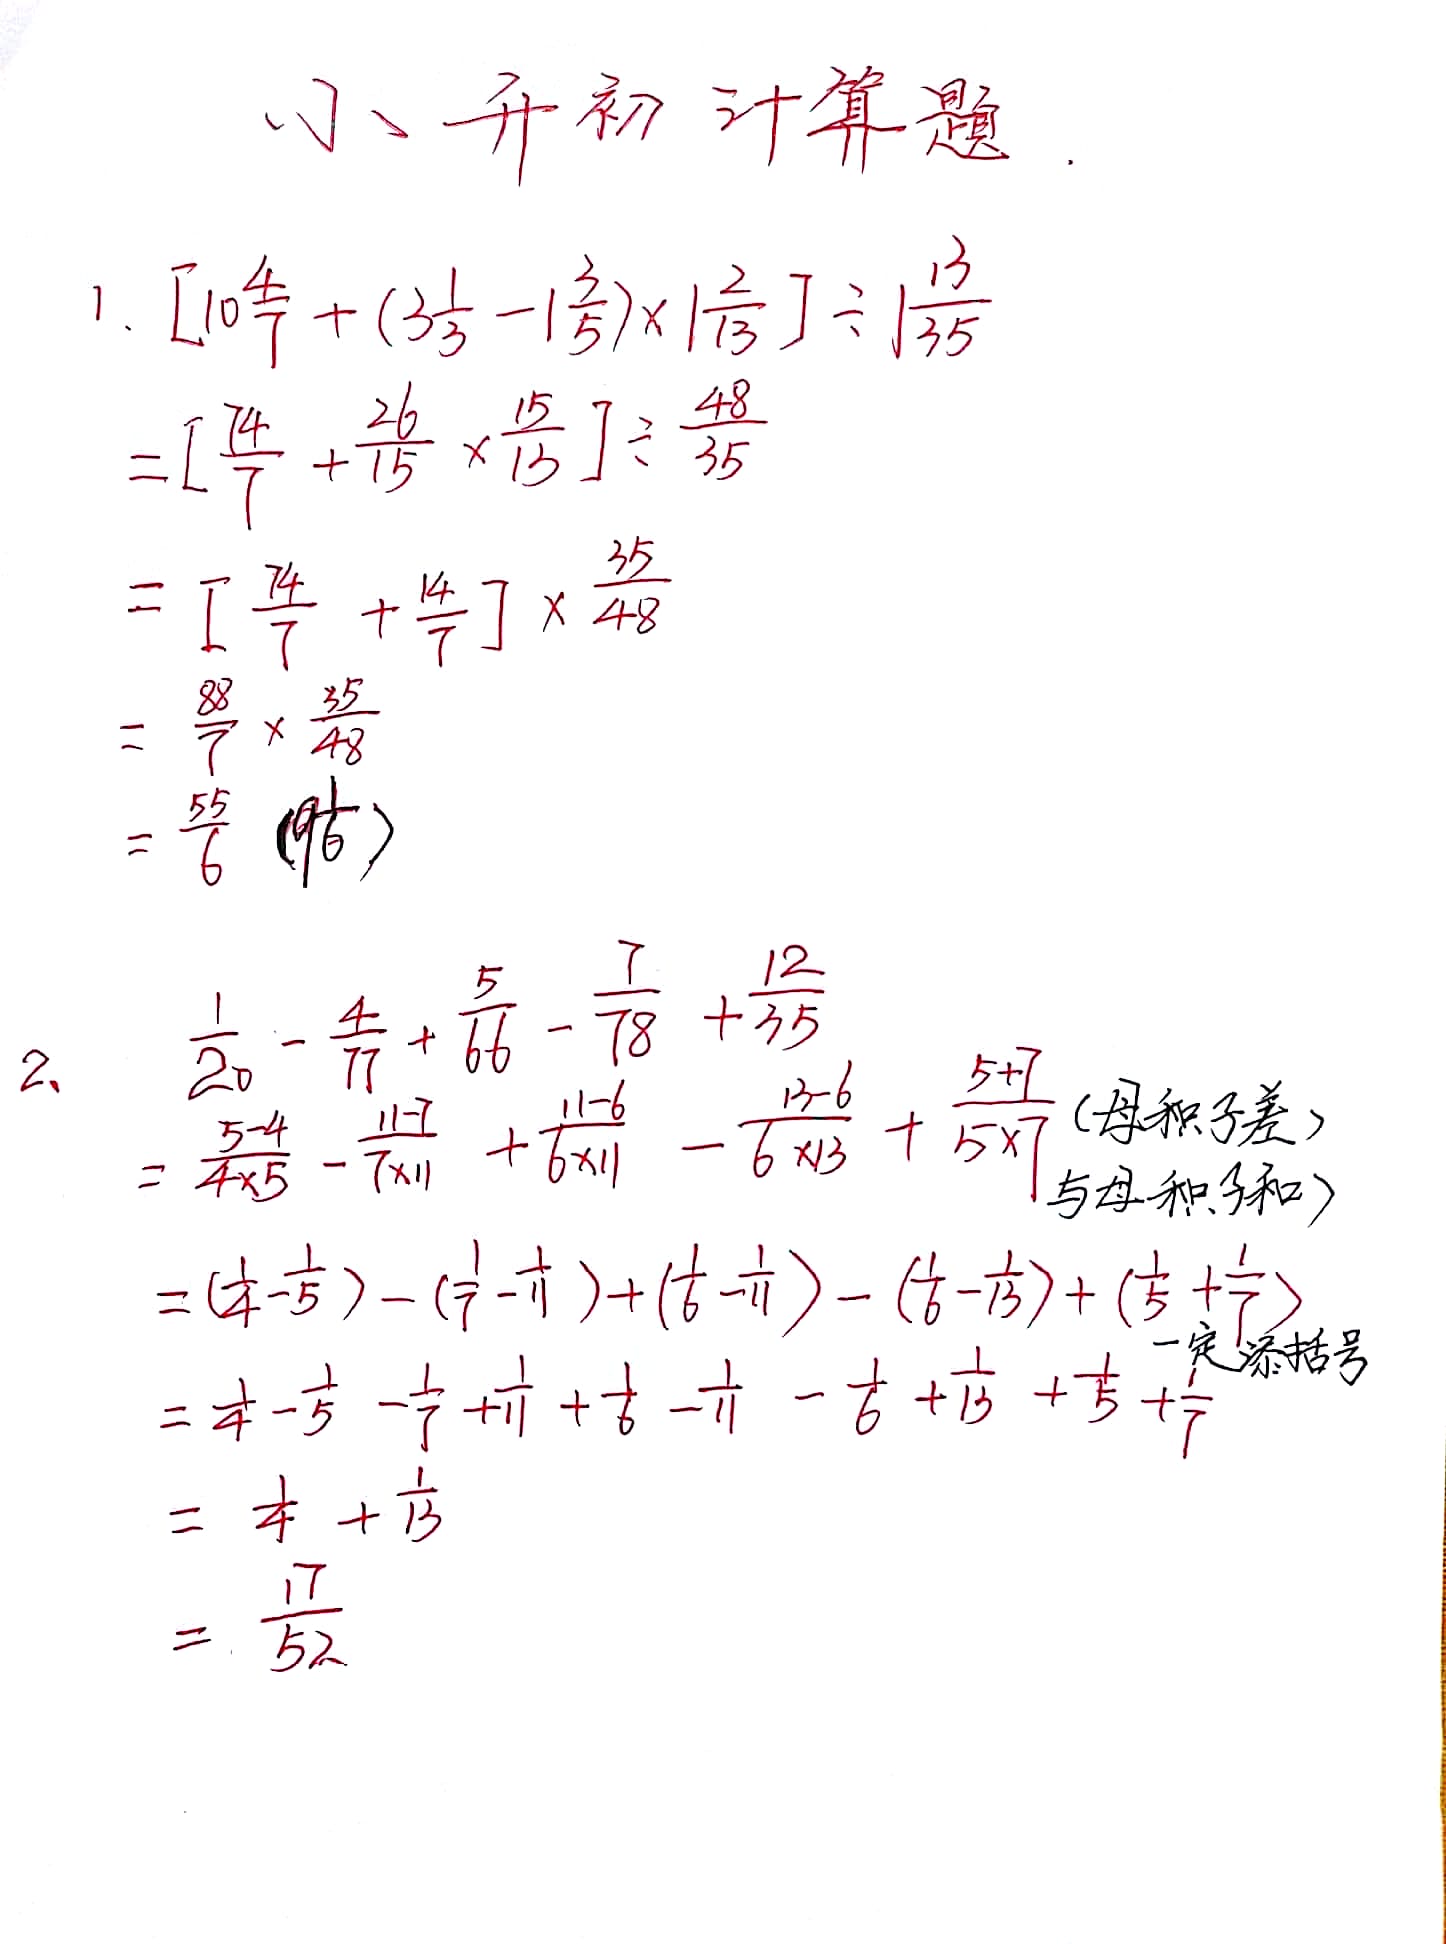 小升初计算题.
1. [10 4/7 + (3 1/3 - 1 3/5) × 1 2/13] ÷ 1 13/35
= [74/7 + 26/15 × 15/13] ÷ 48/35
= [74/7 + 14/7] × 35/48
= 88/7 × 35/48
= 55/6 (9 1/6)
2、 1/20 - 4/77 + 5/66 - 7/78 + 12/35
= (5-4)/(4×5) - (11-7)/(7×11) + (11-6)/(6×11) - (13-6)/(6×13) + (5+7)/(5×7) (母积子差
与母积子和)
= (1/4 - 1/5) - (1/7 - 1/11) + (1/6 - 1/11) - (1/6 - 1/13) + (1/5 + 1/7)
一定添括号
= 1/4 - 1/5 - 1/7 + 1/11 + 1/6 - 1/11 - 1/6 + 1/13 + 1/5 + 1/7
= 1/4 + 1/13
= 17/52